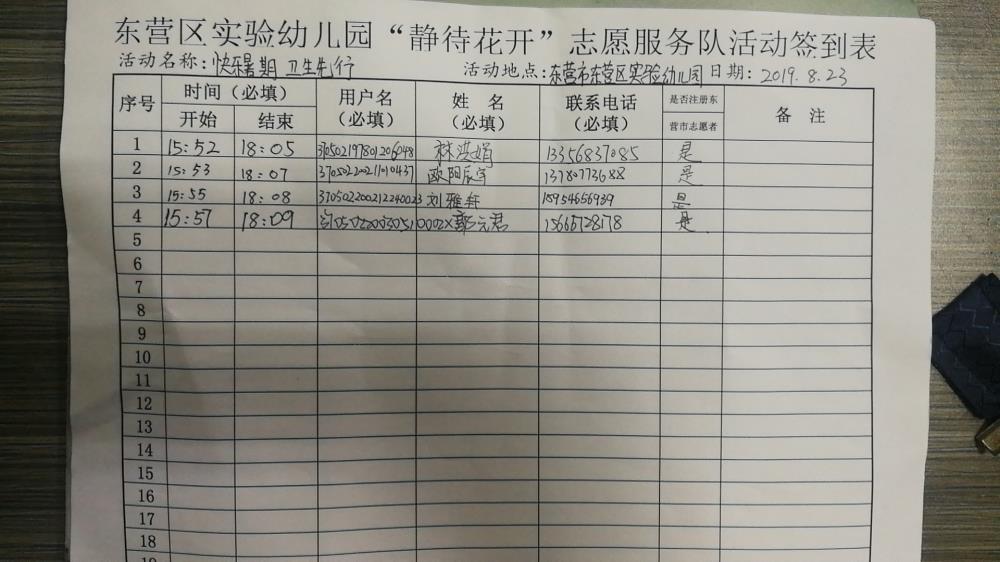 东营区实验幼儿园“静待花开”志愿服务队活动签到表
活动名称：快乐暑期 卫生先行 活动地点：东营市东营区实验幼儿园 日期：2019.8.23
序号 时间（必填） 用户名（必填） 姓 名（必填） 联系电话（必填） 是否注册东营市志愿者 备 注
开始 结束
1 15:52 18:05 370502197801206048 林洪娟 13356837085 是
2 15:53 18:07 370502200211010437 欧阳辰宇 13780773688 是
3 15:55 18:08 370502200212240023 刘雅冉 15954656939 是
4 15:57 18:09 郭元君 15665728178 是
5
6
7
8
9
10
11
12
13
14
15
16
17
18